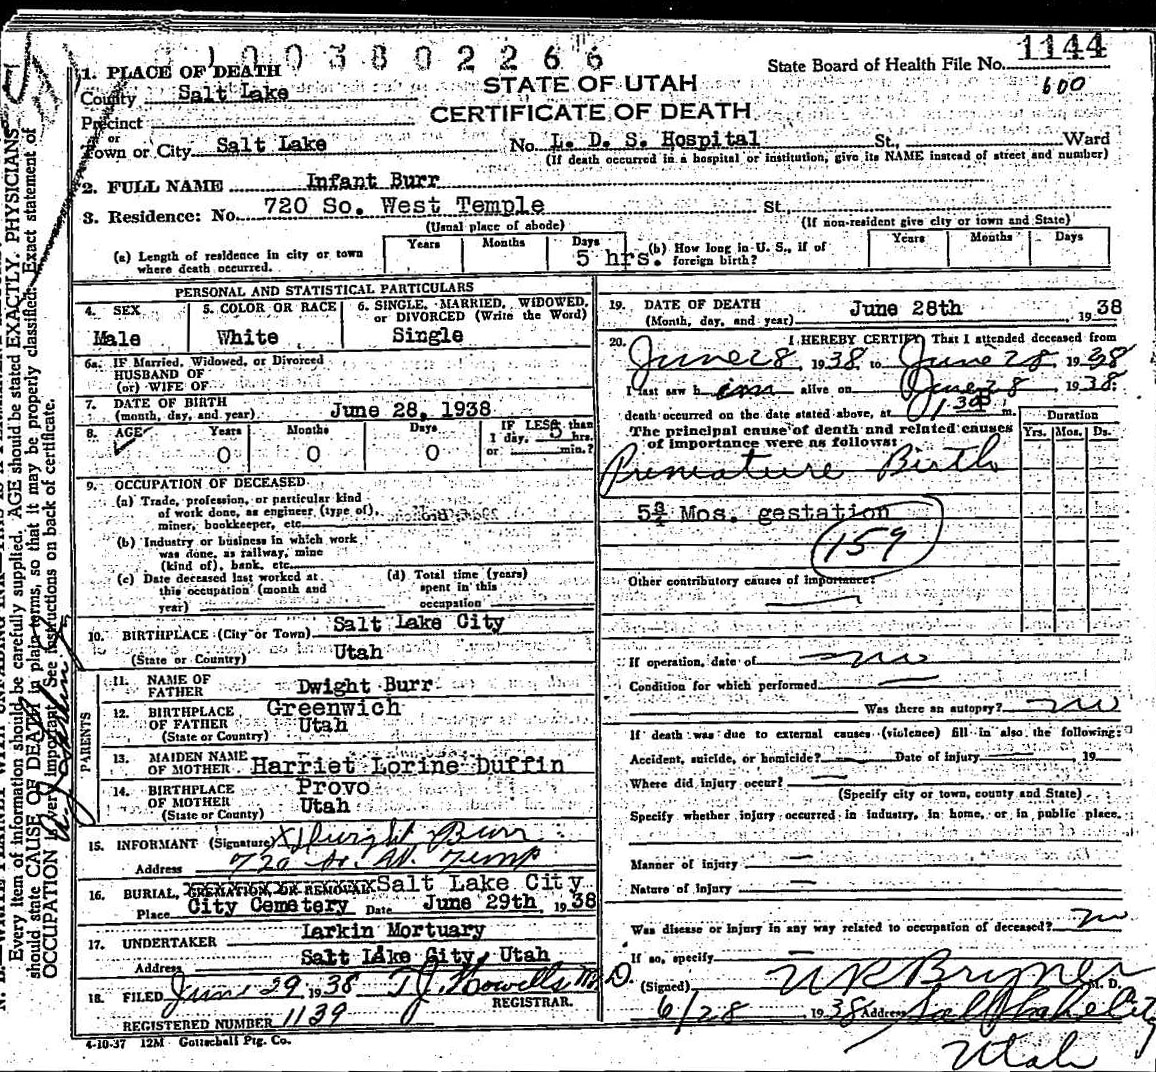 1003802266
State Board of Health File No. 1144
600
STATE OF UTAH
CERTIFICATE OF DEATH
1. PLACE OF DEATH
County Salt Lake
Precinct
or
Town or City Salt Lake No. L. D. S. Hospital St., Ward
(If death occurred in a hospital or institution, give its NAME instead of street and number)
2. FULL NAME Infant Burr
3. Residence: No. 720 So. West Temple St.
(Usual place of abode) (If non-resident give city or town and State)
(a) Length of residence in city or town where death occurred. Years Months Days 5 hrs. (b) How long in U. S., if of foreign birth? Years Months Days
PERSONAL AND STATISTICAL PARTICULARS
4. SEX 5. COLOR OR RACE 6. SINGLE, MARRIED, WIDOWED, or DIVORCED (Write the Word)
Male White Single
6a. IF Married, Widowed, or Divorced
HUSBAND OF
(or) WIFE OF
7. DATE OF BIRTH
(month, day, and year) June 28, 1938
8. AGE Years Months Days IF LESS than
1 day, 5 hrs.
or min.?
0 0 0
9. OCCUPATION OF DECEASED
(a) Trade, profession, or particular kind
of work done, as engineer (type of),
miner, bookkeeper, etc.
(b) Industry or business in which work
was done, as railway, mine
(kind of), bank, etc.
(c) Date deceased last worked at
this occupation (month and
year)
(d) Total time (years)
spent in this
occupation
10. BIRTHPLACE (City or Town) Salt Lake City
(State or Country) Utah
PARENTS
11. NAME OF FATHER Dwight Burr
12. BIRTHPLACE OF FATHER Greenwich
(State or Country) Utah
13. MAIDEN NAME OF MOTHER Harriet Lorine Duffin
14. BIRTHPLACE OF MOTHER Provo
(State or Country) Utah
15. INFORMANT (Signature) X Dwight Burr
Address 720 So. W. Temp
16. BURIAL, CREMATION, OR REMOVAL Salt Lake City
Place City Cemetery Date June 29th, 1938
17. UNDERTAKER Larkin Mortuary
Address Salt Lake City, Utah
18. FILED June 29 1938 T J Howells M. D.
REGISTRAR.
REGISTERED NUMBER 1139
4-10-37 12M Gottschall Ptg. Co.
19. DATE OF DEATH June 28th, 1938
(Month, day, and year)
20. I HEREBY CERTIFY, That I attended deceased from
June 28, 1938, to June 28 1938
I last saw him alive on June 28 1938;
death occurred on the date stated above, at 1 30 m.
The principal cause of death and related causes
of importance were as follows:
Duration
Yrs. Mos. Ds.
Premature Birth
5¾ Mos. gestation
159
Other contributory causes of importance:
If operation, date of no
Condition for which performed
Was there an autopsy? no
If death was due to external causes (violence) fill in also the following:
Accident, suicide, or homicide? Date of injury 19
Where did injury occur?
(Specify city or town, county and State)
Specify whether injury occurred in industry, in home, or in public place.
Manner of injury
Nature of injury
Was disease or injury in any way related to occupation of deceased? no
If so, specify
(Signed) M. D.
6/28 1938 Address Salt Lake City
Utah
Every item of information should be carefully supplied. AGE should be stated EXACTLY. PHYSICIANS
should state CAUSE OF DEATH in plain terms, so that it may be properly classified. Exact statement of
OCCUPATION is very important. See instructions on back of certificate.